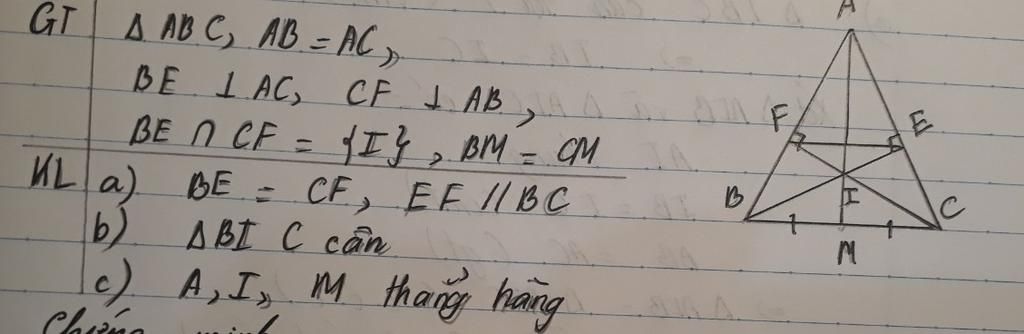 GT ΔABC, AB = AC,
BE ⊥ AC, CF ⊥ AB,
BE ∩ CF = {I}, BM = CM
KL a) BE = CF, EF // BC
b) ΔBIC cân
c) A, I, M thẳng hàng
Chứng minh
A
F
E
B
I
C
M